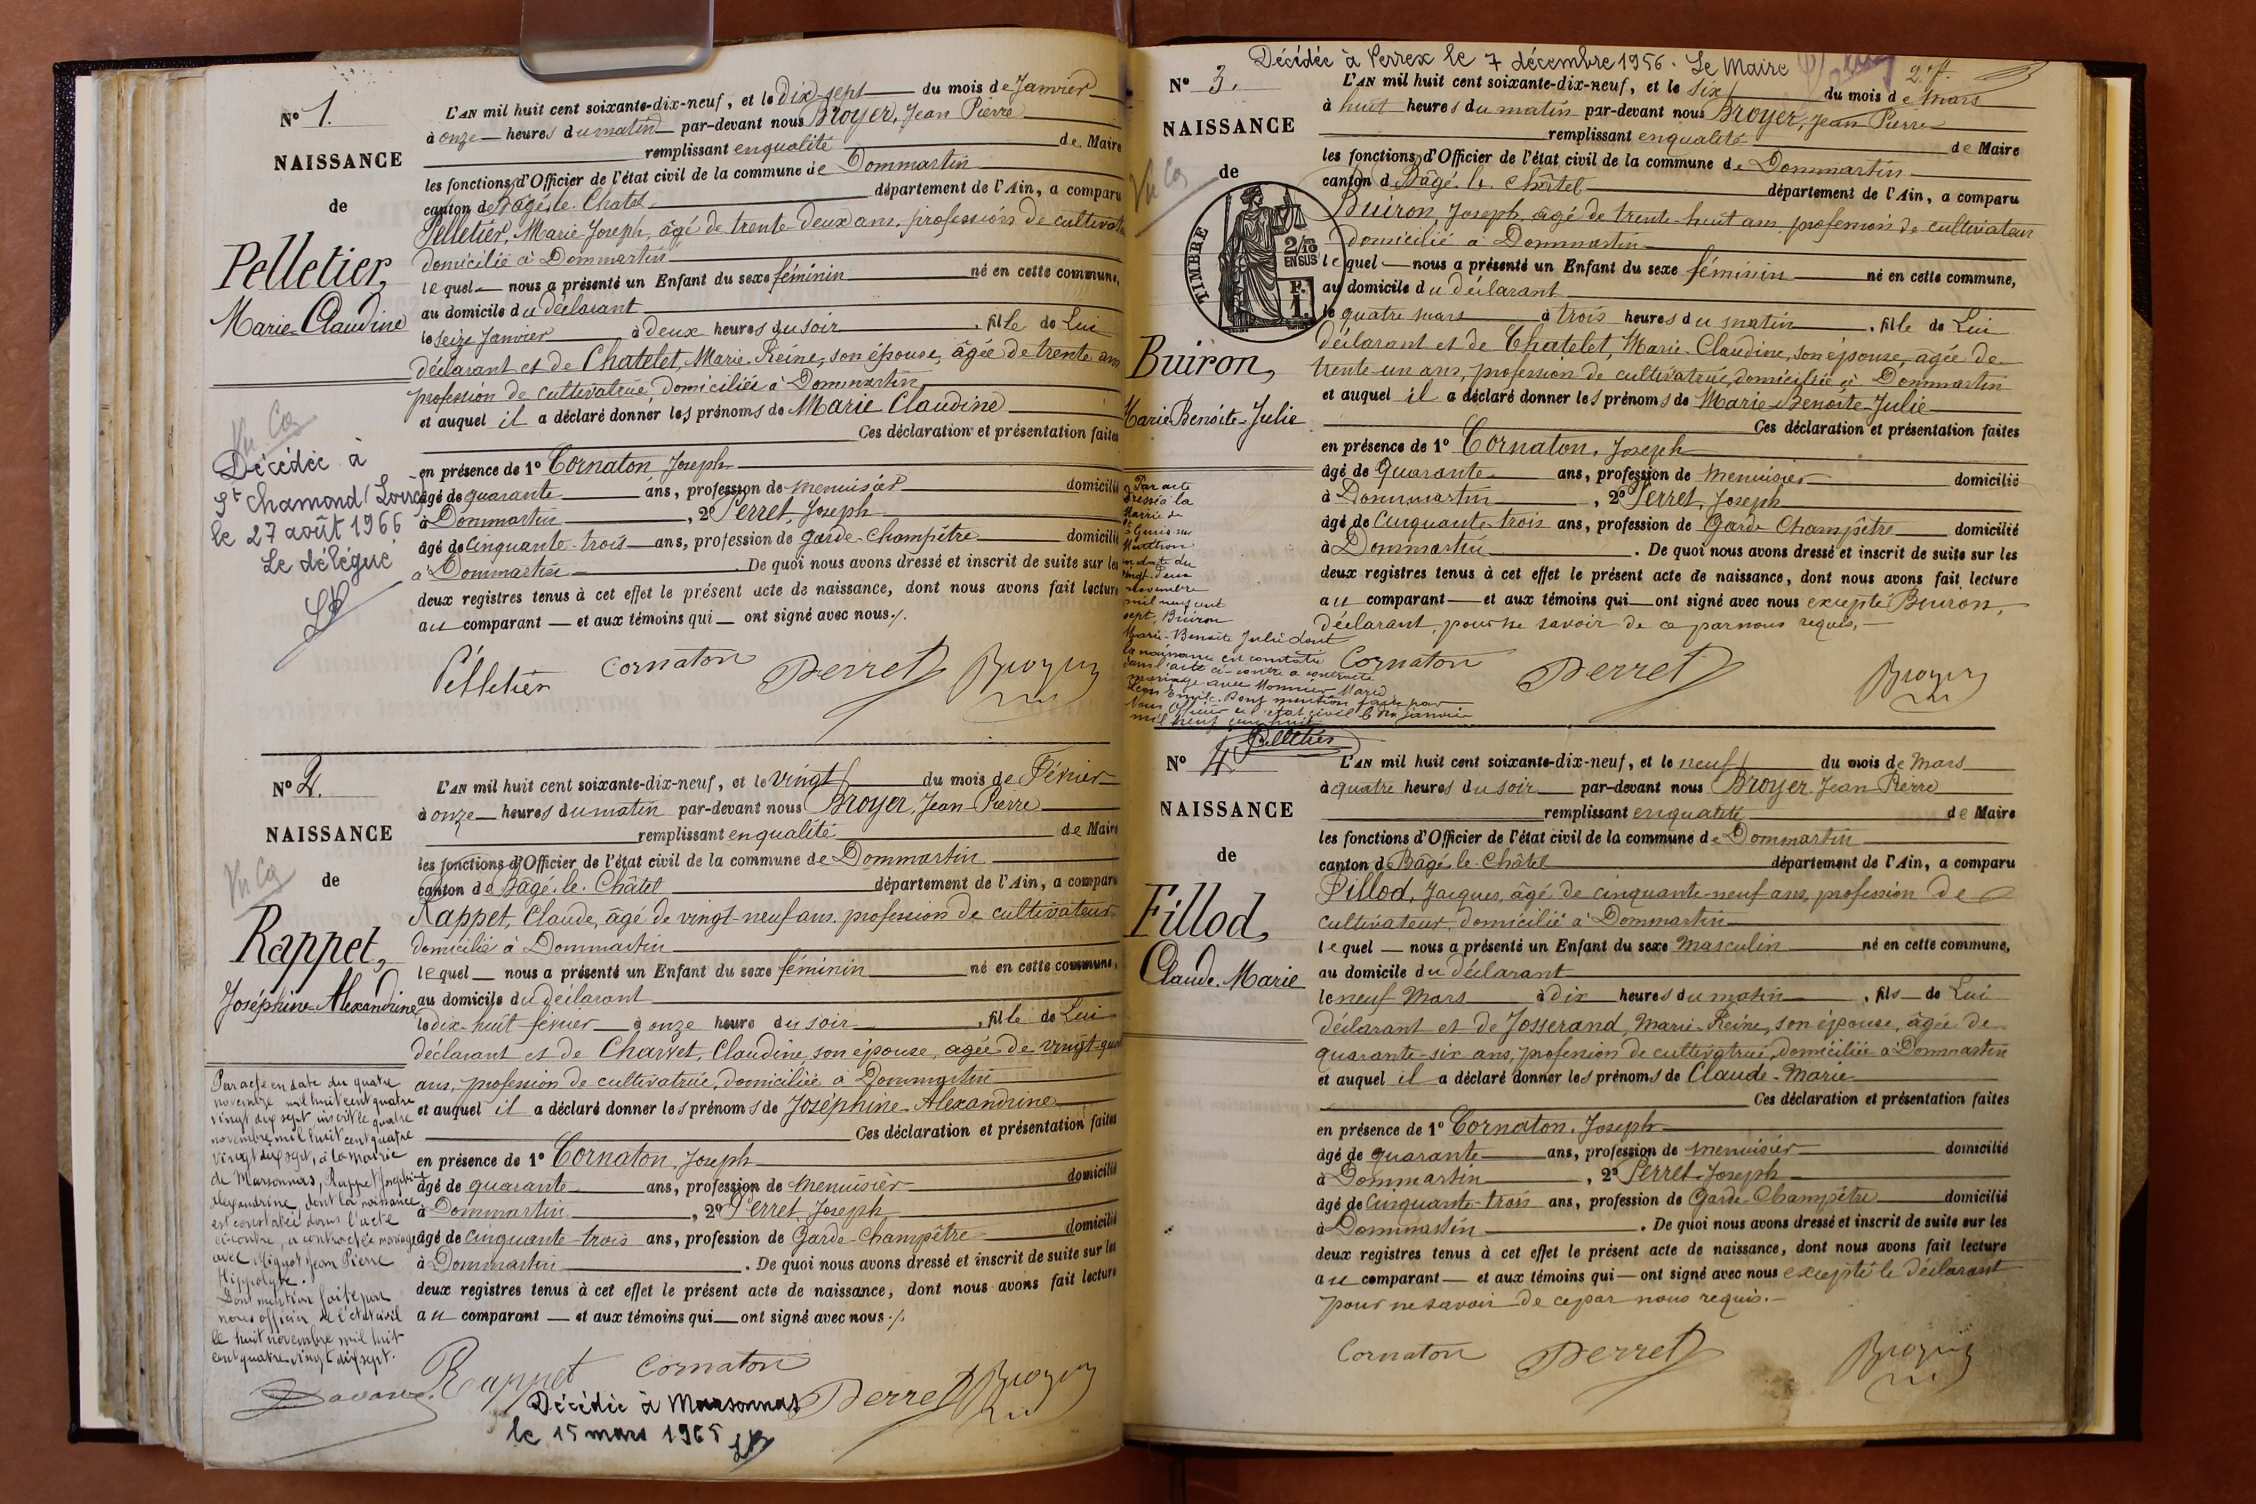 N° 1.
NAISSANCE
de
Pelletier,
Marie-Claudine
Vu
Décédée à
St Chamond (Loire)
le 27 août 1966
Le délégué
L'AN mil huit cent soixante-dix-neuf, et le dix-sept du mois de Janvier
à onze heures du matin par-devant nous Broyer, Jean Pierre
remplissant en qualité de Maire
les fonctions d'Officier de l'état civil de la commune de Dommartin
canton de Bâgé-le-Chatel département de l'Ain, a comparu
Pelletier, Marie Joseph, âgé de trente-deux ans, profession de cultivat
domicilié à Dommartin
lequel nous a présenté un Enfant du sexe féminin né en cette commune,
au domicile du déclarant
le seize Janvier à deux heures du soir, fille de Lui
déclarant et de Chatelet, Marie-Reine, son épouse, âgée de trente ans
profession de cultivatrice, domiciliée à Dommartin,
et auquel il a déclaré donner les prénoms de Marie Claudine
Ces déclaration et présentation faites
en présence de 1° Cornaton, Joseph
âgé de quarante ans, profession de menuisier domicilié
à Dommartin, 2° Perret, Joseph
âgé de cinquante-trois ans, profession de garde-champêtre domicilié
à Dommartin. De quoi nous avons dressé et inscrit de suite sur les
deux registres tenus à cet effet le présent acte de naissance, dont nous avons fait lecture
au comparant et aux témoins qui ont signé avec nous./.
Pelletier Cornaton Perret Broyer
N° 2.
NAISSANCE
de
Vu
Rappet,
Joséphine-Alexandrine
Par acte en date du quatre
novembre mil huit cent quatre
vingt dix sept inscrit le quatre
novembre mil huit cent quatre
vingt dix sept, à la mairie
de Marsonnas, Rappet Joséphine
Alexandrine, dont la naissance
est constatée dans l'acte
ci-contre, a contracté mariage
avec Migot Jean Pierre
Hippolyte.
Dont mention faite par
nous officier de l'état civil
le huit novembre mil huit
cent quatre-vingt dix sept.
L'AN mil huit cent soixante-dix-neuf, et le vingt du mois de Février
à onze heures du matin par-devant nous Broyer, Jean-Pierre
remplissant en qualité de Maire
les fonctions d'Officier de l'état civil de la commune de Dommartin
canton de Bâgé-le-Châtel département de l'Ain, a comparu
Rappet, Claude, âgé de vingt-neuf ans, profession de cultivateur
domicilié à Dommartin
lequel nous a présenté un Enfant du sexe féminin né en cette commune,
au domicile du déclarant
le dix-huit février à onze heure du soir, fille de Lui
déclarant et de Charvet, Claudine, son épouse, agée de vingt-quat
ans, profession de cultivatrice, domiciliée à Dommartin
et auquel il a déclaré donner les prénoms de Joséphine-Alexandrine
Ces déclaration et présentation faites
en présence de 1° Cornaton, Joseph
âgé de quarante ans, profession de menuisier domicilié
à Dommartin, 2° Perret, Joseph
âgé de cinquante-trois ans, profession de Garde-Champêtre domicilié
à Dommartin. De quoi nous avons dressé et inscrit de suite sur les
deux registres tenus à cet effet le présent acte de naissance, dont nous avons fait lecture
au comparant et aux témoins qui ont signé avec nous./.
Rappet Cornaton Perret Broyer
Décédée à Marsonnas
le 15 mars 1965
Décédée à Perrex le 7 décembre 1956. Le Maire
N° 3.
NAISSANCE
de
Vu
TIMBRE
2/10
EN SUS
F.
1.
Buiron,
Marie-Benoite-Julie
Par acte
dressé à la
Mairie de
St Genis sur
Menthon
en date du
vingt-deux
novembre
mil neuf cent
sept, Buiron
Marie-Benoite Julie dont
la naissance est constatée
dans l'acte ci-contre a contracté
mariage avec Monnier Marie
Léon Emile. Dont mention faite par
Nous officier de l'état civil le dix janvier
mil neuf cent huit
Pelletier
L'AN mil huit cent soixante-dix-neuf, et le six du mois de mars
à huit heures du matin par-devant nous Broyer, Jean Pierre
remplissant en qualité de Maire
les fonctions d'Officier de l'état civil de la commune de Dommartin
canton d Bâgé-le-Châtel département de l'Ain, a comparu
Buiron, Joseph, âgé de trente-huit ans, profession de cultivateur
domicilié à Dommartin
lequel nous a présenté un Enfant du sexe féminin né en cette commune,
au domicile du déclarant
le quatre mars à trois heures du matin, fille de Lui
déclarant et de Chatelet, Marie-Claudine, son épouse, âgée de
trente-un ans, profession de cultivatrice, domiciliée à Dommartin
et auquel il a déclaré donner les prénoms de Marie-Benoite-Julie
Ces déclaration et présentation faites
en présence de 1° Cornaton, Joseph
âgé de Quarante ans, profession de menuisier domicilié
à Dommartin, 2° Perret, Joseph
âgé de Cinquante-trois ans, profession de Garde Champêtre domicilié
à Dommartin. De quoi nous avons dressé et inscrit de suite sur les
deux registres tenus à cet effet le présent acte de naissance, dont nous avons fait lecture
au comparant et aux témoins qui ont signé avec nous excepté Buiron,
déclarant, pour ne savoir de ce par nous requis.
Cornaton Perret Broyer
N° 4.
NAISSANCE
de
Fillod,
Claude-Marie
L'AN mil huit cent soixante-dix-neuf, et le neuf du mois de Mars
à quatre heures du soir par-devant nous Broyer Jean Pierre
remplissant en qualité de Maire
les fonctions d'Officier de l'état civil de la commune de Dommartin
canton d Bâgé-le-Châtel département de l'Ain, a comparu
Fillod, Jacques, âgé de cinquante-neuf ans, profession de
cultivateur, domicilié à Dommartin
lequel nous a présenté un Enfant du sexe masculin né en cette commune,
au domicile du déclarant
le neuf Mars à dix heures du matin, fils de Lui
déclarant et de Josserand, Marie-Reine, son épouse, âgée de
quarante-six ans, profession de cultivatrice, domiciliée à Dommartin
et auquel il a déclaré donner les prénoms de Claude-Marie
Ces déclaration et présentation faites
en présence de 1° Cornaton, Joseph
âgé de quarante ans, profession de menuisier domicilié
à Dommartin, 2° Perret Joseph
âgé de Cinquante-trois ans, profession de Garde-Champêtre domicilié
à Dommartin. De quoi nous avons dressé et inscrit de suite sur les
deux registres tenus à cet effet le présent acte de naissance, dont nous avons fait lecture
au comparant et aux témoins qui ont signé avec nous excepté le déclarant
pour ne savoir de ce par nous requis.
Cornaton Perret Broyer